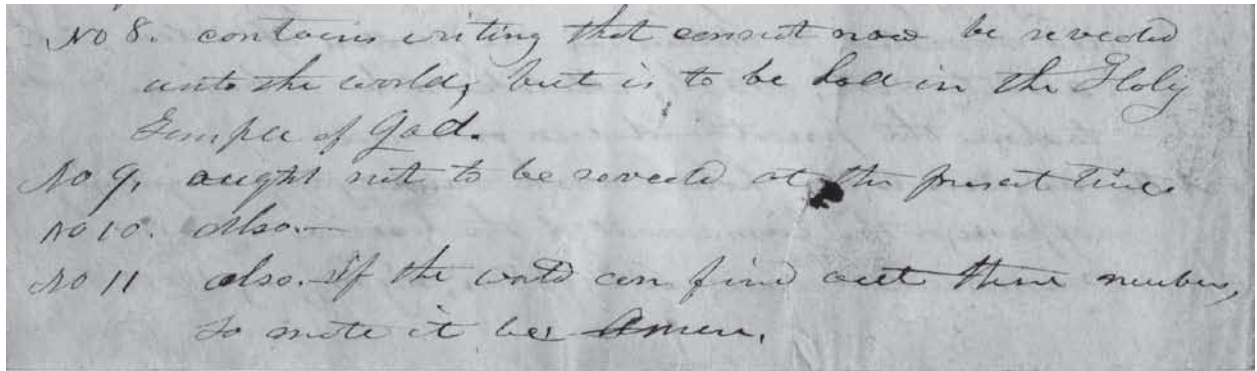 No 8. contains writing that cannot now be reveeled
unto the world, but is to be had in the Holy
Temple of God.
No 9, ought not to be reveeld at the present time.
No 10. also.—
No 11 also. If the world can find out these numbers,
So mote it be. Amen.